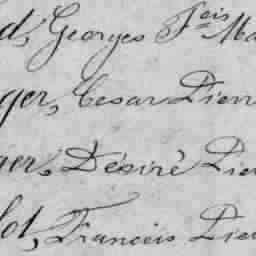 d, Georges Fois Ma
ger, Cesar Pierr
ger, Désiré Pier
lot, Francois Pier